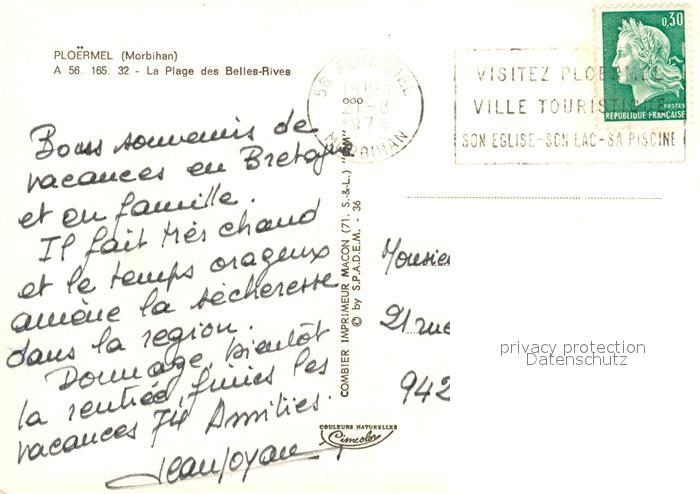 PLOËRMEL (Morbihan)
A 56. 165. 32 - La Plage des Belles-Rives
Bons souvenirs de
vacances en Bretagne
et en famille.
Il fait très chaud
et le temps orageux
amène la sécheresse
dans la région.
Dommage, bientôt
la rentrée, finies les
vacances 74 Amitiés.
COMBIER IMPRIMEUR MACON (71. S.-&-L.) "CIM"
© by S.P.A.D.E.M. - 36
COULEURS NATURELLES
Cimcolor
56 PLOERMEL
21-8
1974
MORBIHAN
VISITEZ PLOERMEL
VILLE TOURISTIQUE
SON EGLISE-SON LAC-SA PISCINE
0,30
POSTES
REPUBLIQUE FRANÇAISE
Monsie
21 rue
942
privacy protection
Datenschutz